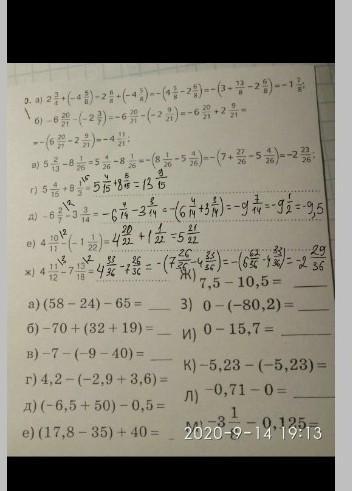 а) 2 3/4 + (−4 5/8) = 2 6/8 + (−4 5/8) = −(4 5/8 − 2 6/8) = −(3 + 13/8 − 2 6/8) = −1 7/8;
б) −6 20/21 − (−2 3/7) = −6 20/21 − (−2 9/21) = −6 20/21 + 2 9/21 =
= −(6 20/21 − 2 9/21) = −4 11/21;
в) 5 2/13 − 8 1/26 = 5 4/26 − 8 1/26 = −(8 1/26 − 5 4/26) = −(7 + 27/26 − 5 4/26) = −2 23/26;
г) 5 4/15 + 8 1/3 = 5 4/15 + 8 5/15 = 13 9/15
д) −6 2/7 − 3 3/14 = −6 4/14 − 3 3/14 = −(6 4/14 + 3 3/14) = −9 7/14 = −9 1/2 = −9,5
е) 4 10/11 − (−1 1/22) = 4 20/22 + 1 1/22 = 5 21/22
ж) 4 11/12 − 7 13/18 = 4 33/36 − 7 26/36 = −(7 26/36 − 4 33/36) = −(6 62/36 − 4 33/36) = −2 29/36
а) (58 − 24) − 65 =
б) −70 + (32 + 19) =
в) −7 − (−9 − 40) =
г) 4,2 − (−2,9 + 3,6) =
д) (−6,5 + 50) − 0,5 =
е) (17,8 − 35) + 40 =
Ж) 7,5 − 10,5 =
З) 0 − (−80,2) =
И) 0 − 15,7 =
К) −5,23 − (−5,23) =
Л) −0,71 − 0 =
М) −3 1/8 − 0,125 =
2020-9-14 19:13